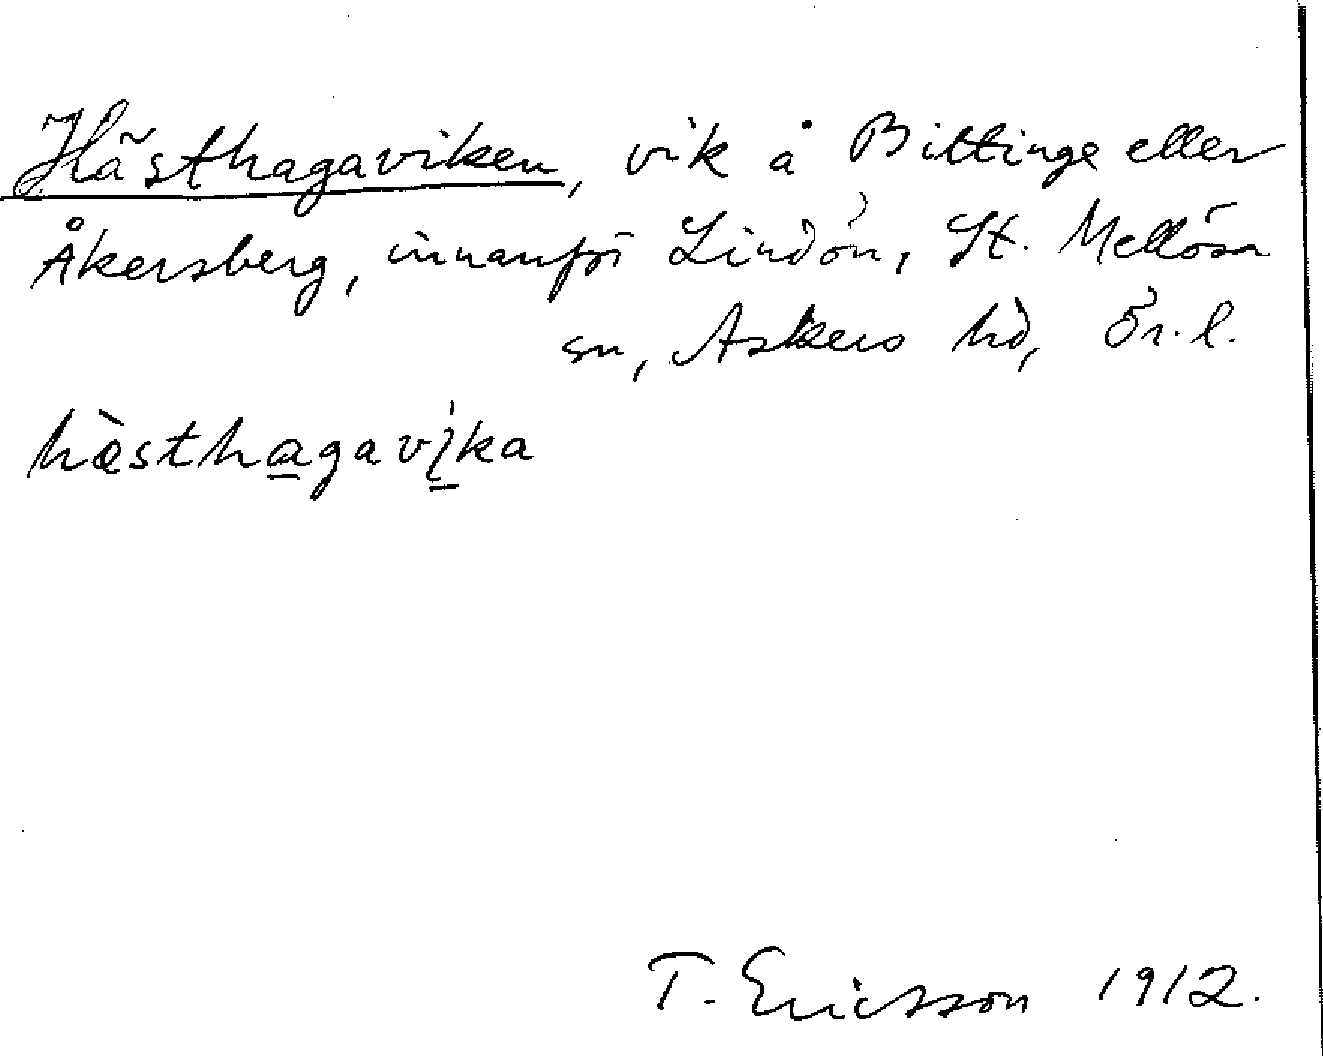 Hästhagaviken, vik å Bittinge eller
Åkersberg, innanför Lindön, St. Mellösa
sn, Askers hd, Ör. l.
hæ̀sthagavi̇ka
T. Ericsson 1912.